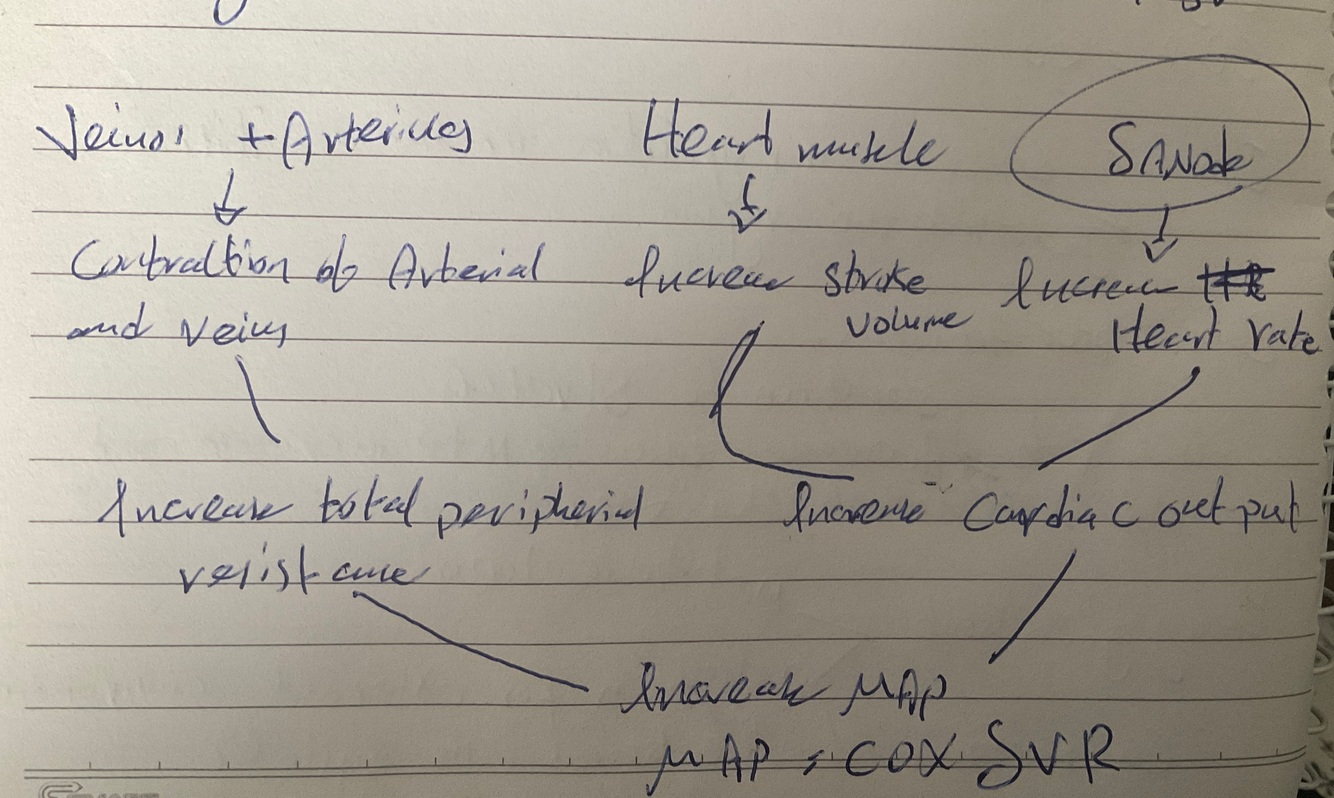 Veins + Arteries Heart muscle SA Node
Contraction of Arterial Increase stroke Increase
and veins volume Heart rate
Increase total peripherial Increase Cardiac output
resistance
Increase MAP
MAP = CO X SVR